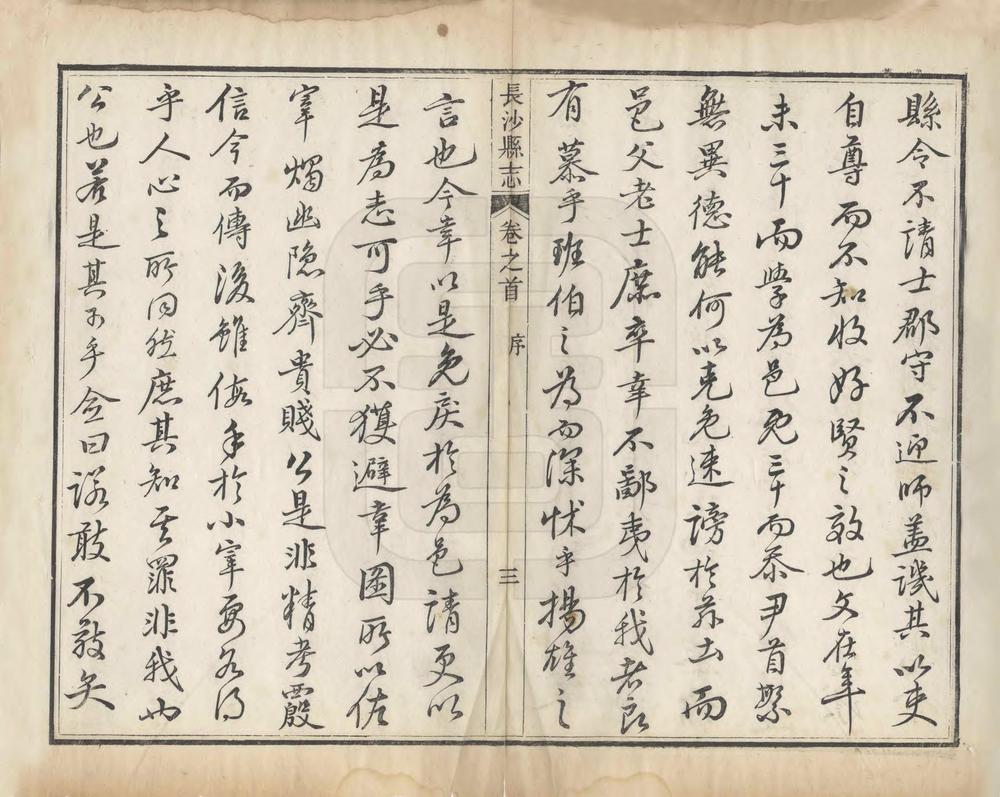 縣令不請士郡守不迎師蓋譏其以吏
自尊而不知收好賢之效也文在年
未三十而學為邑免三十而忝尹首繫
無異德能何以克免速謗於茲土而
邑父老士庶卒幸不鄙夷於我者良
有慕乎班伯之為而深怵乎揚雄之
長沙縣志
卷之首
序
三
言也今幸以是免戾於為邑請更以
是為志可乎必不獲避幸圖所以佐
宰燭幽隱齊貴賤公是非精考覈
信今而傳後雖假手於小宰要為得
乎人心之所同然庶其知我罪非我也
公也若是其可乎僉曰諾敢不敬矣